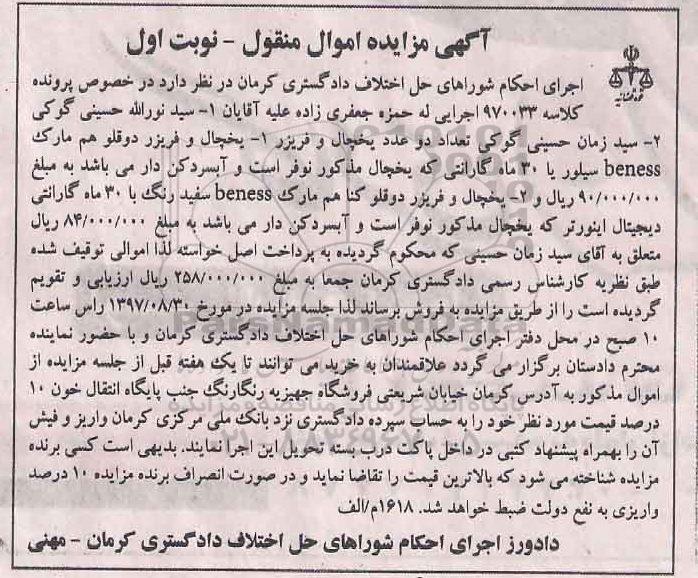 آگهی مزایده اموال منقول - نوبت اول
اجرای احکام شوراهای حل اختلاف دادگستری کرمان در نظر دارد در خصوص پرونده
کلاسه ۹۷۰۰۳۳ اجرایی له حمزه جعفری زاده علیه آقایان ۱- سید نورالله حسینی گوکی
۲- سید زمان حسینی گوکی تعداد دو عدد یخچال و فریزر ۱- یخچال و فریزر دوقلو هم مارک
beness سیلور با ۳۰ ماه گارانتی که یخچال مذکور نوفر است و آبسردکن دار می باشد به مبلغ
۹۰/۰۰۰/۰۰۰ ریال و ۲- یخچال و فریزر دوقلو کنا هم مارک beness سفید رنگ با ۳۰ ماه گارانتی
دیجیتال اینورتر که یخچال مذکور نوفر است و آبسردکن دار می باشد به مبلغ ۸۴/۰۰۰/۰۰۰ ریال
متعلق به آقای سید زمان حسینی که محکوم گردیده به پرداخت اصل خواسته لذا اموالی توقیف شده
طبق نظریه کارشناس رسمی دادگستری کرمان جمعا به مبلغ ۲۵۸/۰۰۰/۰۰۰ ریال ارزیابی و تقویم
گردیده است را از طریق مزایده به فروش برساند لذا جلسه مزایده در مورخ ۱۳۹۷/۰۸/۳۰ راس ساعت
۱۰ صبح در محل دفتر اجرای احکام شوراهای حل اختلاف دادگستری کرمان و با حضور نماینده
محترم دادستان برگزار می گردد علاقمندان به خرید می توانند تا یک هفته قبل از جلسه مزایده از
اموال مذکور به آدرس کرمان خیابان شریعتی فروشگاه جهیزیه رنگارنگ جنب پایگاه انتقال خون ۱۰
درصد قیمت مورد نظر خود را به حساب سپرده دادگستری نزد بانک ملی مرکزی کرمان واریز و فیش
آن را بهمراه پیشنهاد کتبی در داخل پاکت درب بسته تحویل این اجرا نمایند. بدیهی است کسی برنده
مزایده شناخته می شود که بالاترین قیمت را تقاضا نماید و در صورت انصراف برنده مزایده ۱۰ درصد
واریزی به نفع دولت ضبط خواهد شد. ۱۶۱۸م/الف
دادورز اجرای احکام شوراهای حل اختلاف دادگستری کرمان - مهنی